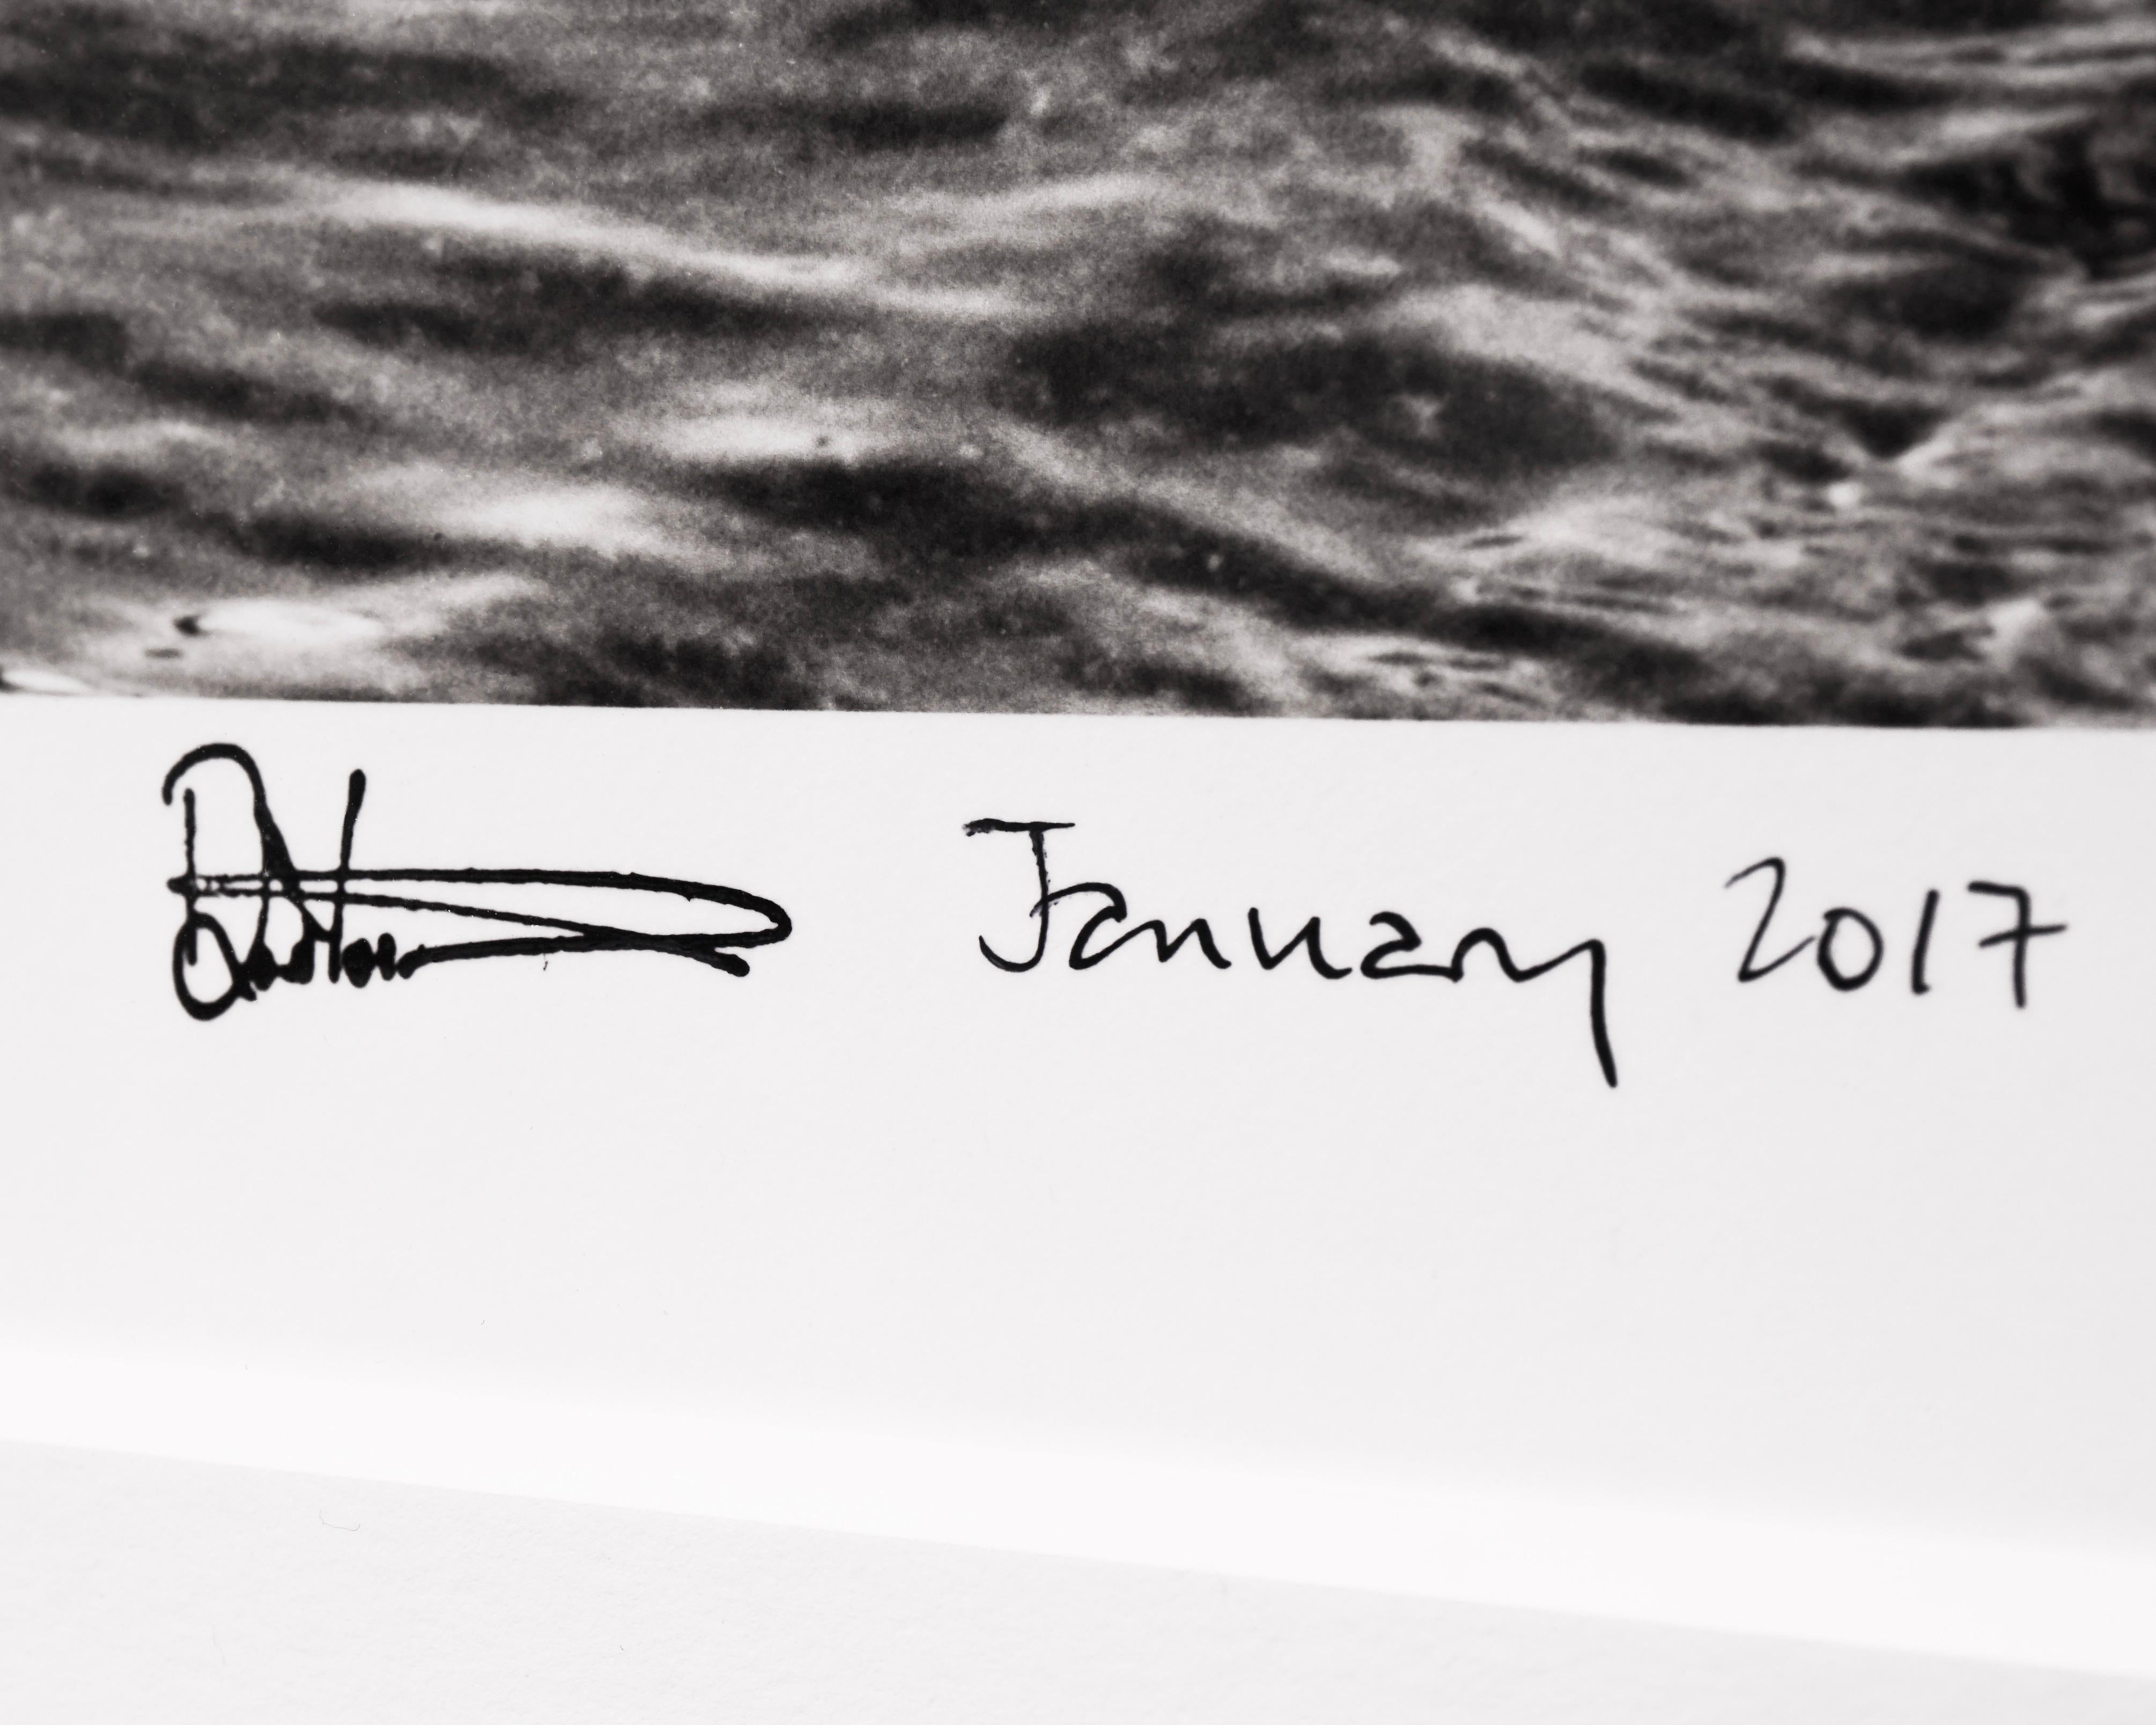 January 2017